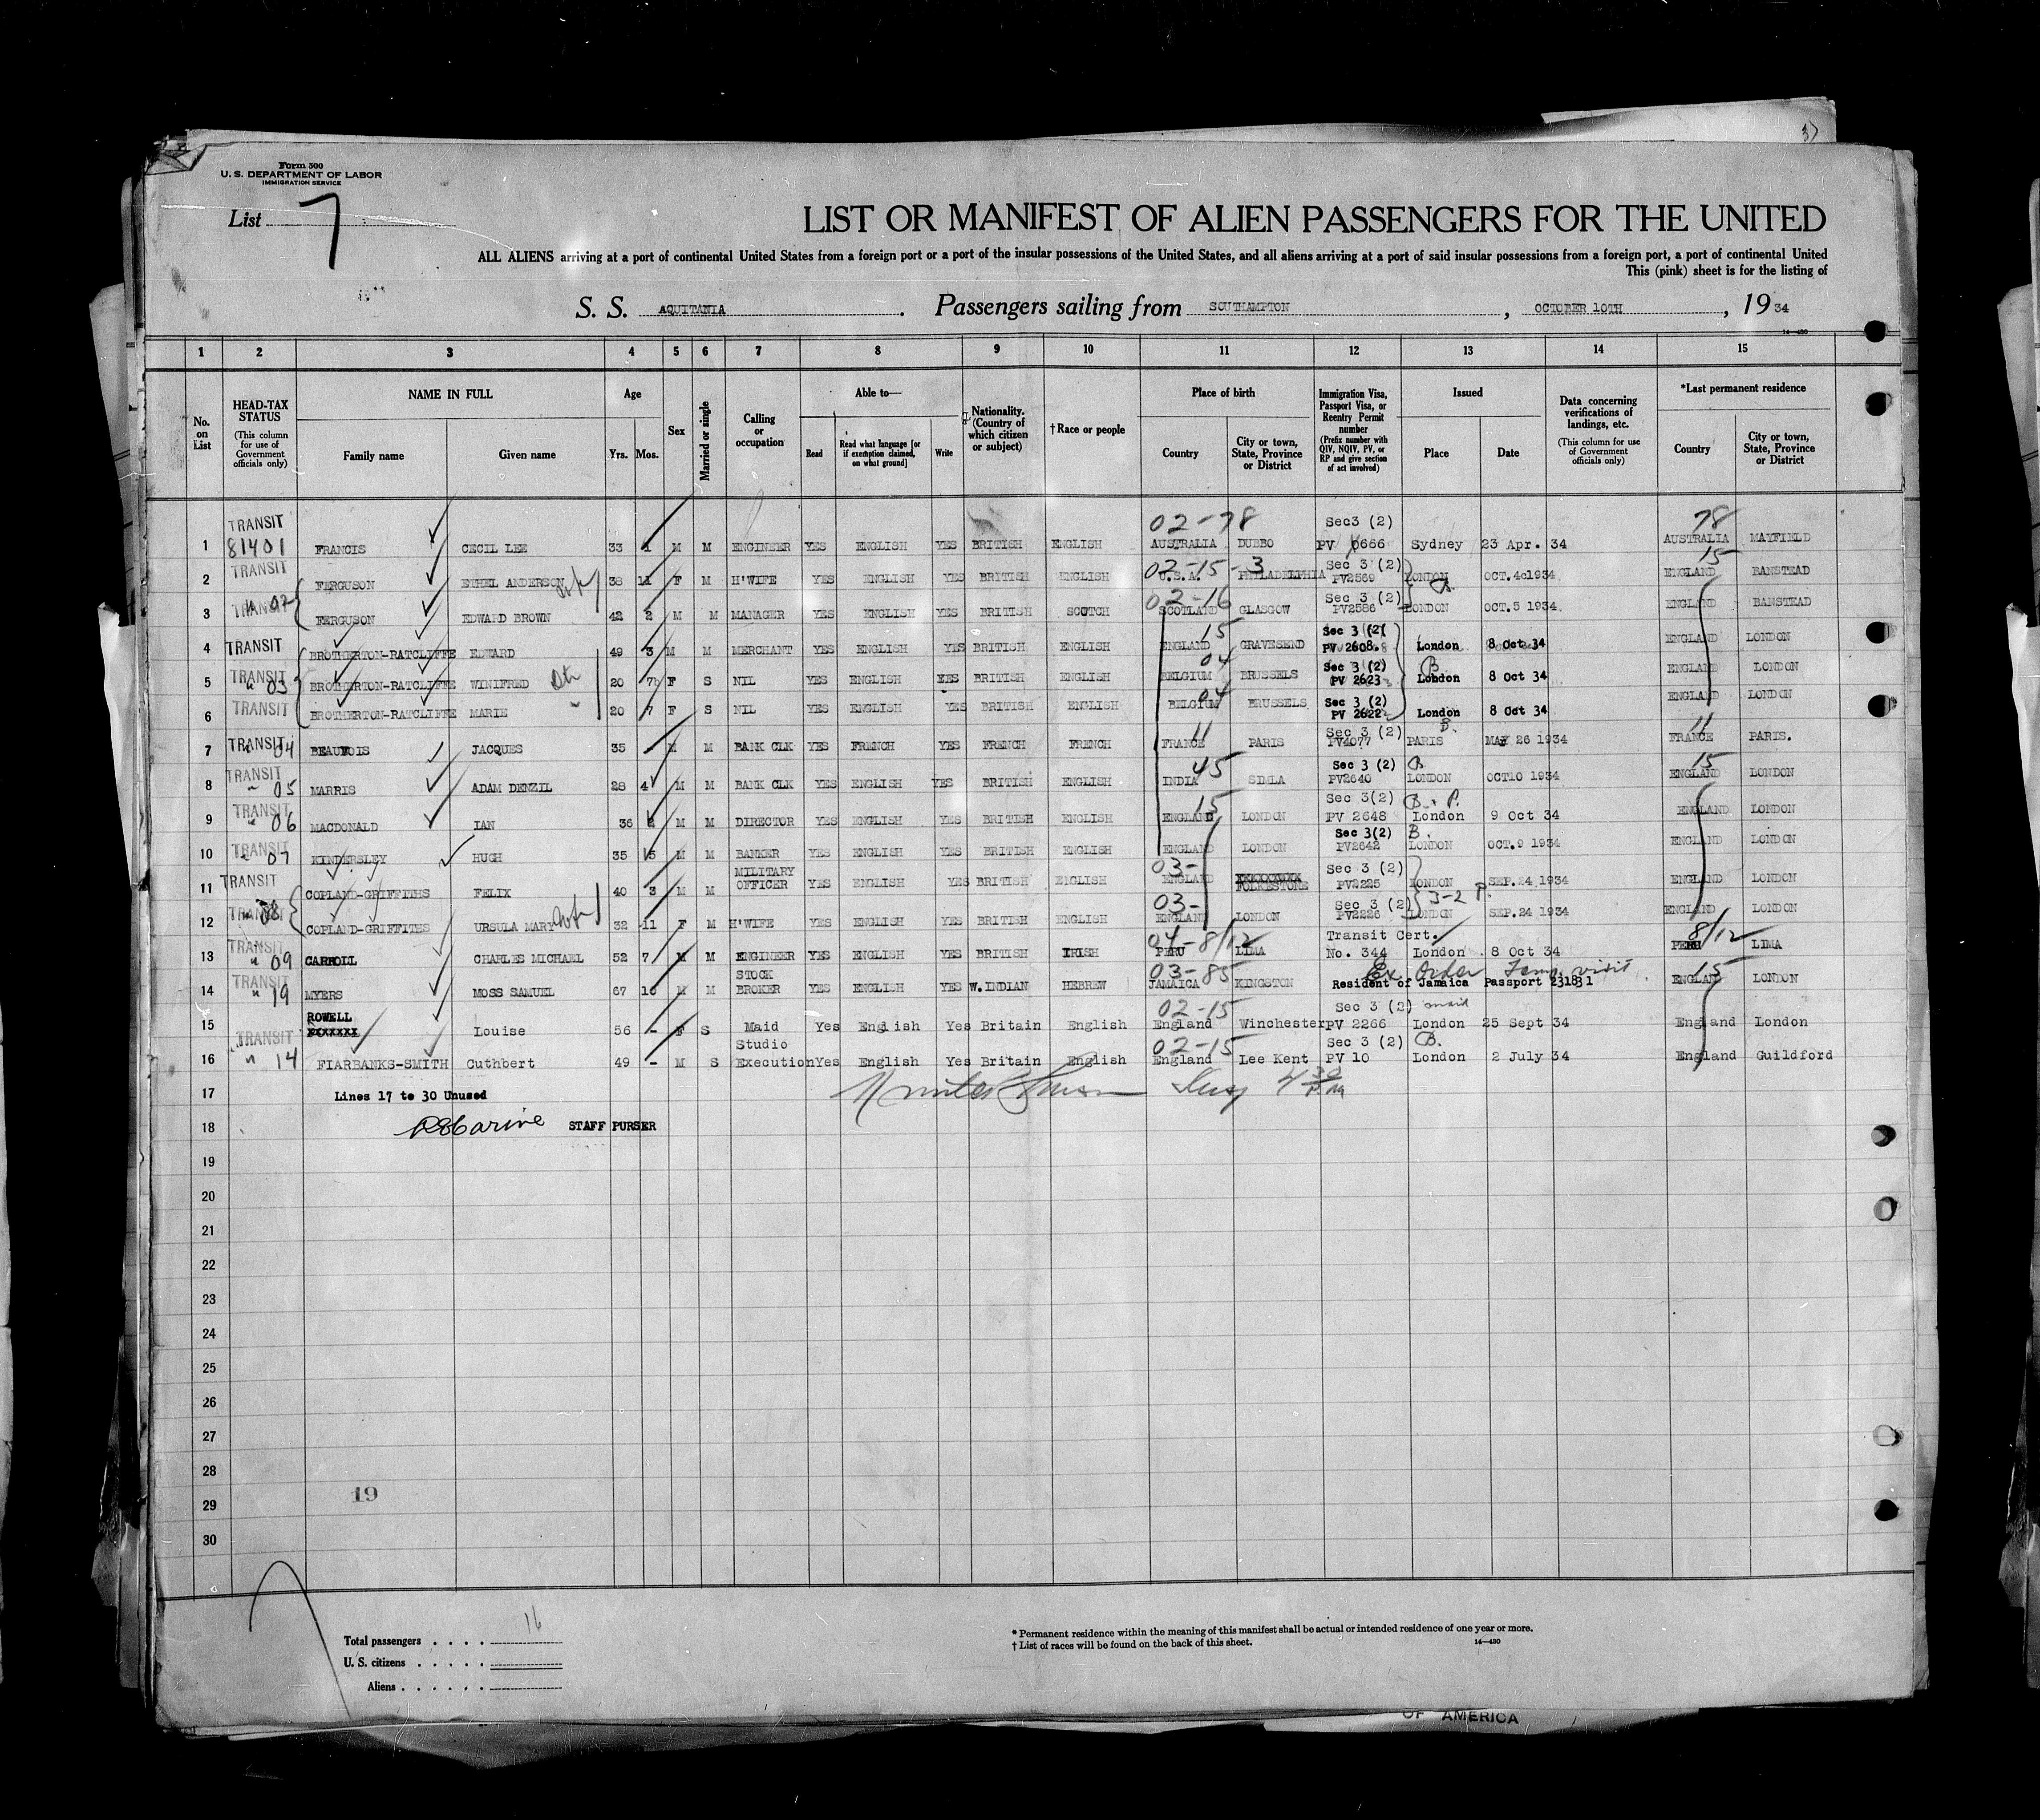 37
Form 500
U. S. DEPARTMENT OF LABOR
IMMIGRATION SERVICE
List 7
LIST OR MANIFEST OF ALIEN PASSENGERS FOR THE UNITED
ALL ALIENS arriving at a port of continental United States from a foreign port or a port of the insular possessions of the United States, and all aliens arriving at a port of said insular possessions from a foreign port, a port of continental United
This (pink) sheet is for the listing of
S. S. AQUITANIA. Passengers sailing from SOUTHAMPTON, OCTOBER 10TH, 1934
14—430
1 2 3 4 5 6 7 8 9 10 11 12 13 14 15
No. on List
HEAD-TAX STATUS (This column for use of Government officials only)
NAME IN FULL Family name Given name
Age Yrs. Mos.
Sex
Married or single
Calling or occupation
Able to— Read Read what language [or if exemption claimed, on what ground] Write
Nationality. (Country of which citizen or subject)
†Race or people
Place of birth Country City or town, State, Province or District
Immigration Visa, Passport Visa, or Reentry Permit number (Prefix number with QIV, NQIV, PV, or RP and give section of act involved)
Issued Place Date
Data concerning verifications of landings, etc. (This column for use of Government officials only)
*Last permanent residence Country City or town, State, Province or District
TRANSIT 02-78 Sec3 (2) 78
1 81401 FRANCIS CECIL LEE 33 1 M M ENGINEER YES ENGLISH YES BRITISH ENGLISH AUSTRALIA DUBBO PV 0666 Sydney 23 Apr. 34 AUSTRALIA MAYFIELD
TRANSIT 02-15-3 Sec 3 (2) 15
2 FERGUSON ETHEL ANDERSON 38 11 F M H'WIFE YES ENGLISH YES BRITISH ENGLISH U.S.A. PHILADELPHIA PV2569 LONDON OCT.4 1934 ENGLAND BANSTEAD
TRANSIT " 02 02-16 Sec 3 (2)
3 FERGUSON EDWARD BROWN 42 2 M M MANAGER YES ENGLISH YES BRITISH SCOTCH SCOTLAND GLASGOW PV2586 LONDON OCT.5 1934 ENGLAND BANSTEAD
15 Sec 3 (2)
4 TRANSIT BROTHERTON-RATCLIFFE EDWARD 49 3 M M MERCHANT YES ENGLISH YES BRITISH ENGLISH ENGLAND GRAVESEND PV 2608 London 8 Oct 34 ENGLAND LONDON
TRANSIT 04 Sec 3 (2) B
5 " 03 BROTHERTON-RATCLIFFE WINIFRED 20 7 F S NIL YES ENGLISH YES BRITISH ENGLISH BELGIUM BRUSSELS PV 2623 London 8 Oct 34 ENGLAND LONDON
TRANSIT 04 Sec 3 (2)
6 BROTHERTON-RATCLIFFE MARIE 20 7 F S NIL YES ENGLISH YES BRITISH ENGLISH BELGIUM BRUSSELS PV 2622 London 8 Oct 34 ENGLAND LONDON
11 Sec 3 (2) B. 11
7 TRANSIT 04 BEAUFOIS JACQUES 35 M M BANK CLK YES FRENCH YES FRENCH FRENCH FRANCE PARIS PV4077 PARIS MAY 26 1934 FRANCE PARIS.
TRANSIT 45 Sec 3 (2) B 15
8 " 05 MARRIS ADAM DENZIL 28 4 M M BANK CLK YES ENGLISH YES BRITISH ENGLISH INDIA SIMLA PV2640 LONDON OCT10 1934 ENGLAND LONDON
TRANSIT 15 Sec 3(2) B. + P.
9 " 06 MACDONALD IAN 36 2 M M DIRECTOR YES ENGLISH YES BRITISH ENGLISH ENGLAND LONDON PV 2648 London 9 Oct 34 ENGLAND LONDON
TRANSIT Sec 3(2) B.
10 " 07 KINDERSLEY HUGH 35 5 M M BANKER YES ENGLISH YES BRITISH ENGLISH ENGLAND LONDON PV2642 LONDON OCT.9 1934 ENGLAND LONDON
TRANSIT MILITARY 03- Sec 3 (2)
11 COPLAND-GRIFFITHS FELIX 40 3 M M OFFICER YES ENGLISH YES BRITISH ENGLISH ENGLAND FOLKESTONE PV2225 LONDON SEP.24 1934 ENGLAND LONDON
TRANSIT " 08 03- Sec 3 (2) 3-2 P.
12 COPLAND-GRIFFITHS URSULA MARY 32 11 F M H'WIFE YES ENGLISH YES BRITISH ENGLISH ENGLAND LONDON PV2226 LONDON SEP.24 1934 ENGLAND LONDON
TRANSIT 04-8/12 Transit Cert. 8/12
13 " 09 CARROLL CHARLES MICHAEL 52 7 M M ENGINEER YES ENGLISH YES BRITISH IRISH PERU LIMA No. 344 London 8 Oct 34 PERU LIMA
TRANSIT STOCK 03-85 Ex Order Temp. visit 15
14 " 19 MYERS MOSS SAMUEL 67 10 M M BROKER YES ENGLISH YES W.INDIAN HEBREW JAMAICA KINGSTON Resident of Jamaica Passport 231831 ENGLAND LONDON
ROWELL 02-15 Sec 3 (2) maid
15 XXXXXXX Louise 56 - F S Maid Yes English Yes Britain English England Winchester PV 2266 London 25 Sept 34 England London
TRANSIT Studio 02-15 Sec 3 (2) B.
16 " 14 FIARBANKS-SMITH Cuthbert 49 - M S Execution Yes English Yes Britain English England Lee Kent PV 10 London 2 July 34 England Guildford
17 Lines 17 to 30 Unused
18 STAFF PURSER
19
20
21
22
23
24
25
26
27
28
29 19
30
Total passengers . . . . 16
U. S. citizens . . . . .
Aliens . . . . .
* Permanent residence within the meaning of this manifest shall be actual or intended residence of one year or more.
† List of races will be found on the back of this sheet. 14—430
OF AMERICA